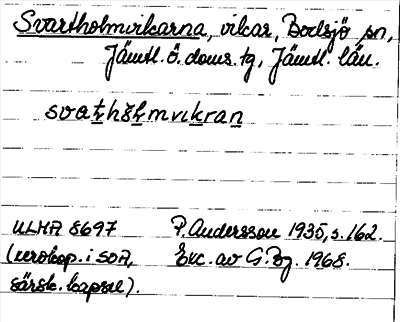 Svartholmvikarna, vikar, Bodsjö sn,
Jämtl. ö. doms. tg, Jämtl. län.
svaṯhšḵmvıḵraṉ
ULMA 8697 P. Andersson 1935, s. 162.
(xerokop. i SOA, Exc. av G. Bg. 1968.
särsk. kapsel).